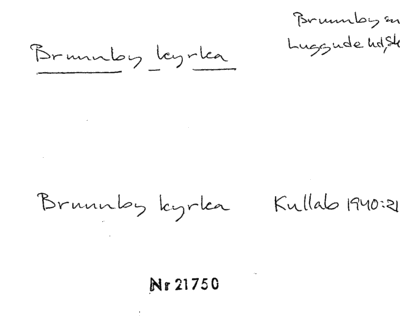 Brunnby sn
Luggude hd, Sk
Brunnby kyrka
Brunnby kyrka Kullab 1940:21
Nr 21750